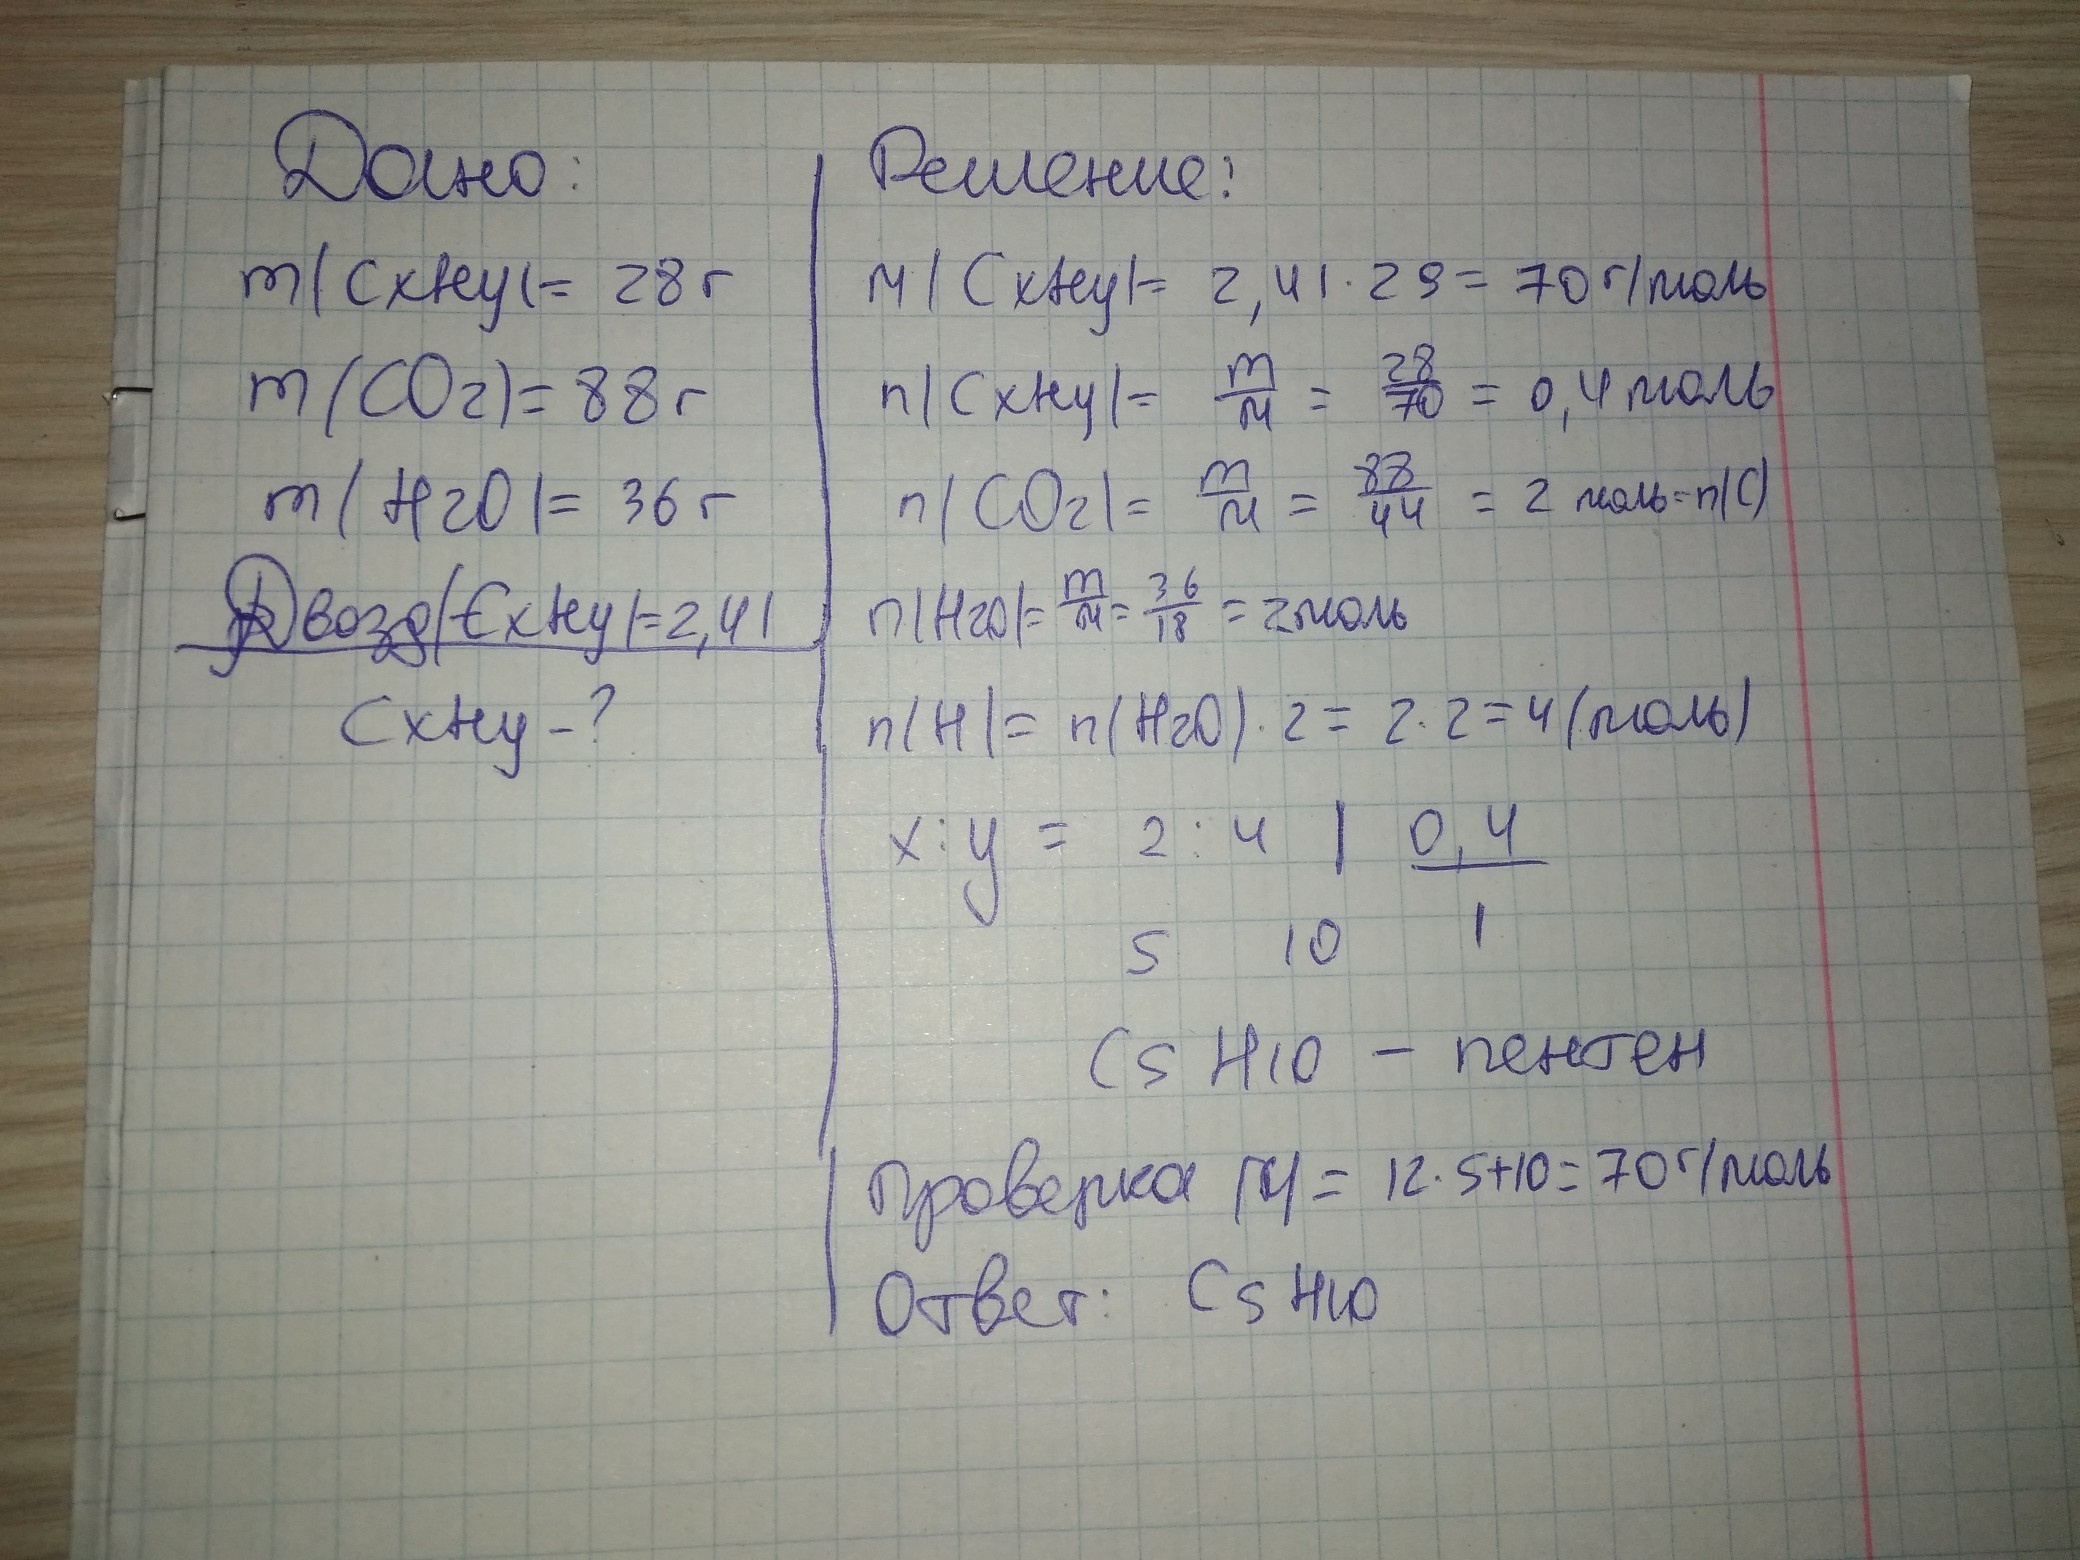 Дано:
m(CxHy)= 28 г
m(CO2)= 88 г
m(H2O)= 36 г
Dвозд(CxHy)=2,41
CxHy - ?
Решение:
M(CxHy)= 2,41·29= 70 г/моль
n(CxHy)= m/M = 28/70 = 0,4 моль
n(CO2)= m/M = 88/44 = 2 моль=n(C)
n(H2O)= m/M = 36/18 = 2 моль
n(H)= n(H2O)·2= 2·2=4(моль)
x:y = 2:4 | 0,4
5 10 1
C5H10 – пентен
Проверка M = 12·5+10=70г/моль
Ответ: C5H10